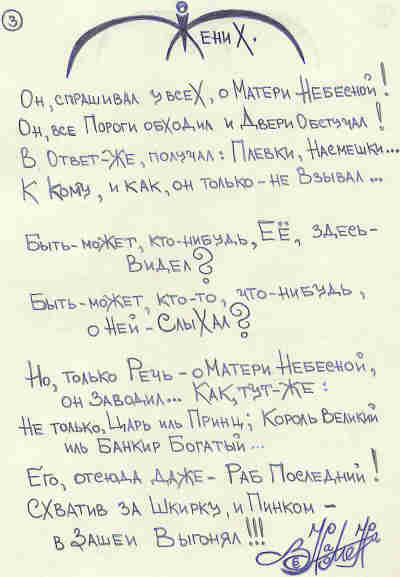 3
ЖениХ.
Он, спрашивал у всеХ, о Матери Небесной!
Он, все Пороги обходил и Двери Обстучал!
В Ответ-же, получал: Плевки, Насмешки...
К Кому, и как, он только-не Взывал...
Быть-может, кто-нибудь, Её, здесь-
Видел?
Быть-может, кто-то, что-нибудь,
о Ней-СлыХал?
Но, только Речь-о Матери Небесной,
он Заводил... Как, тут-же:
Не только, Царь иль Принц; Король Великий
иль Банкир Богатый...
Его, отсюда даже-Раб Последний!
Схватив за Шкирку, и Пинком-
в Зашеи Выгонял!!!